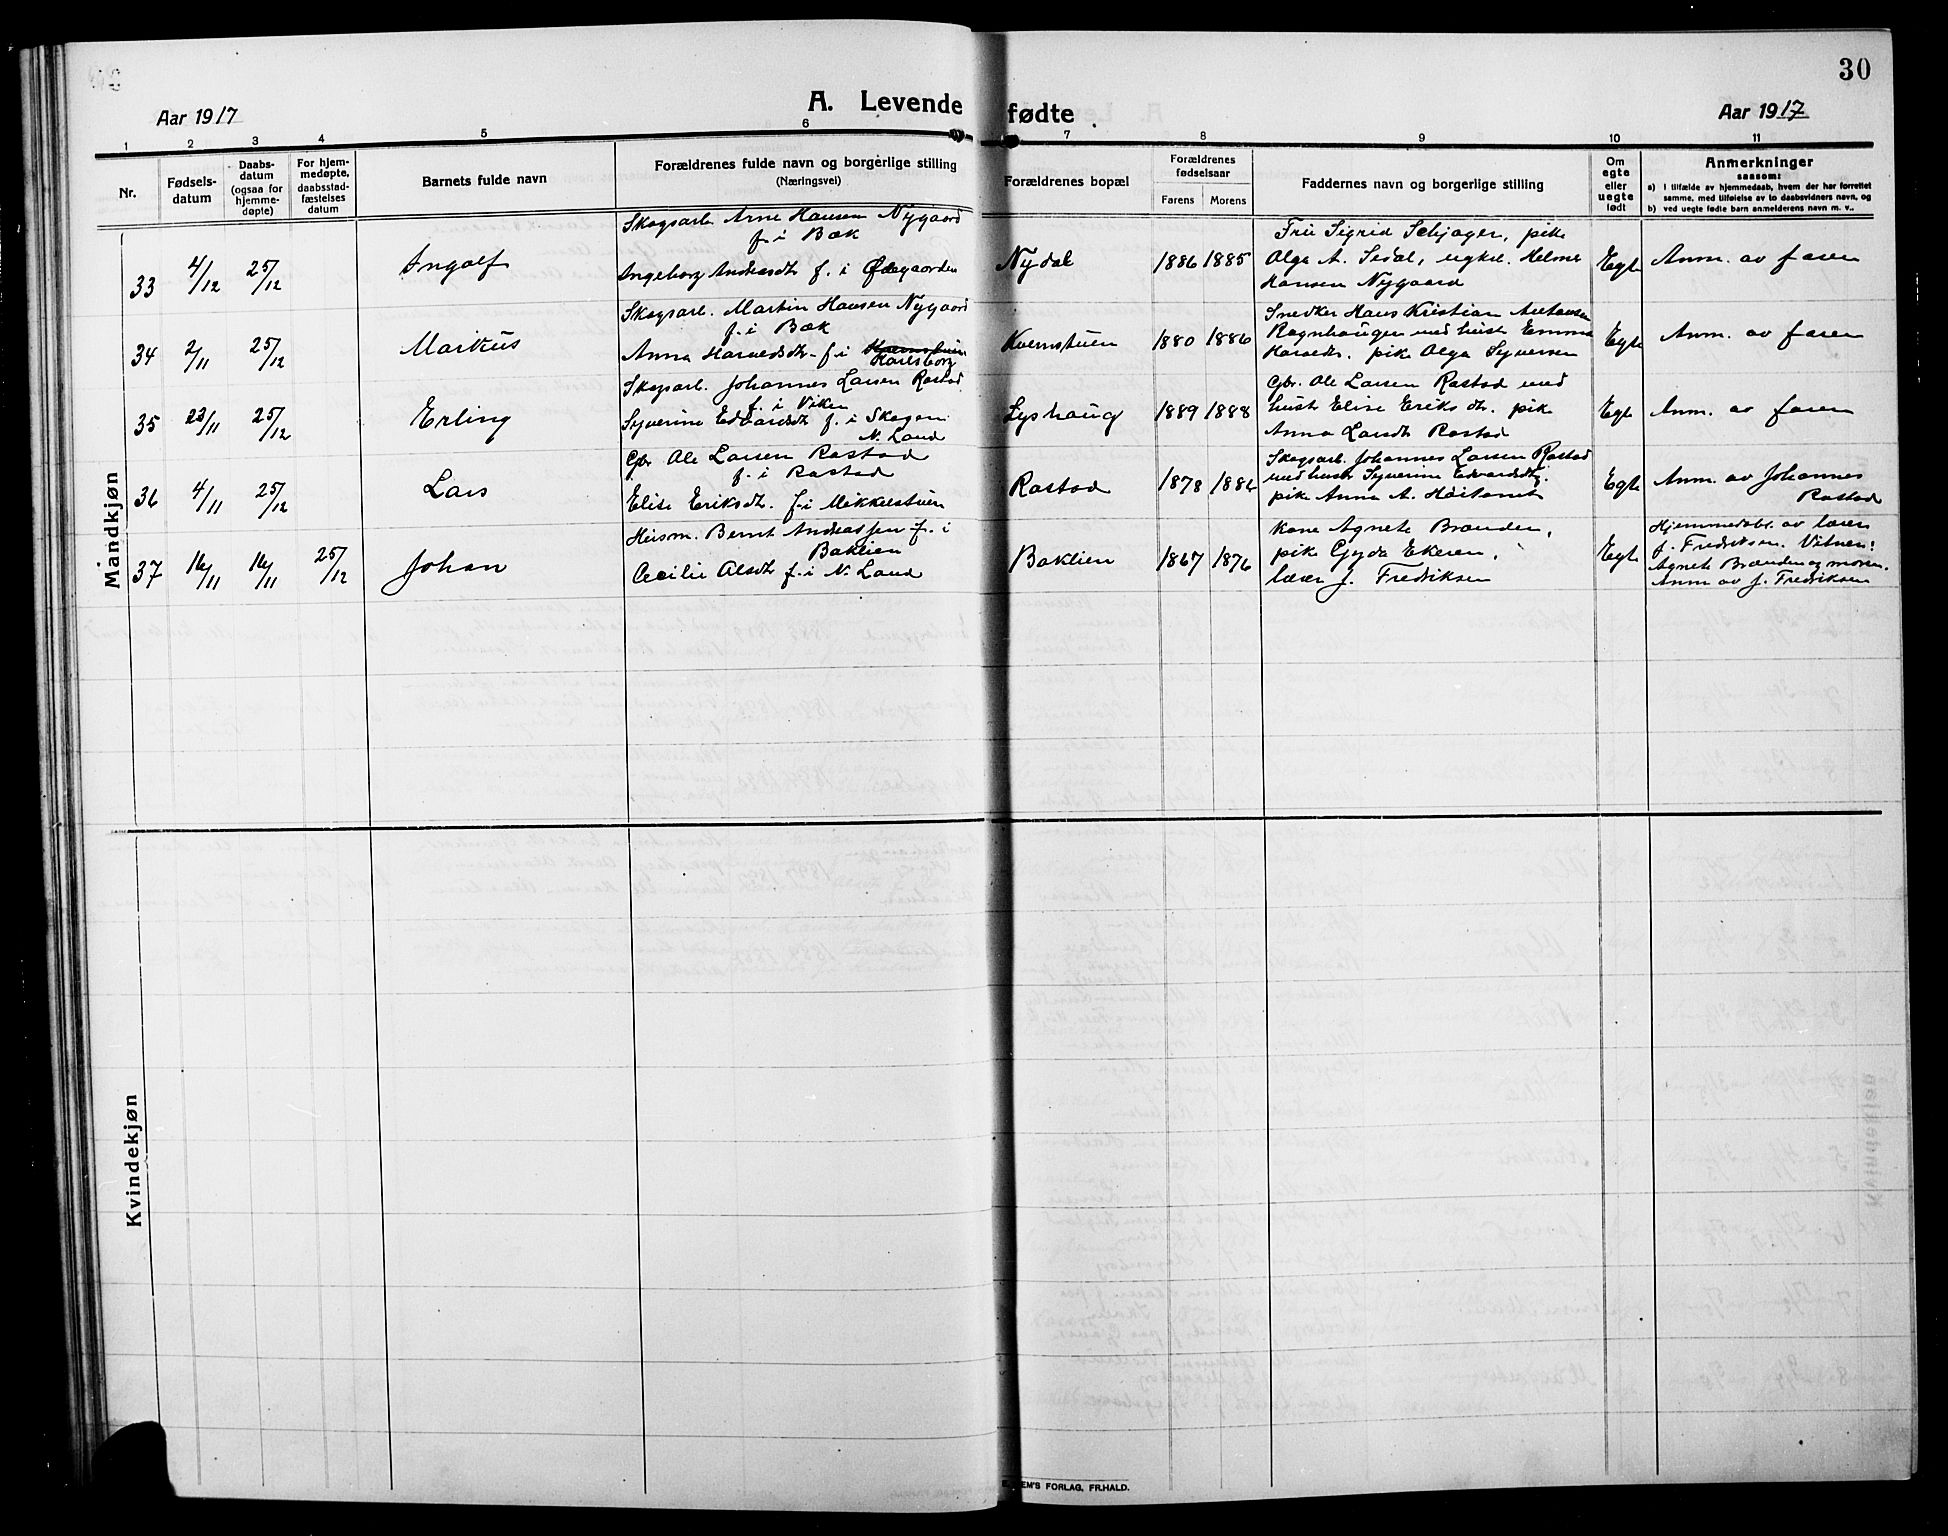 30
Aar 1917
A. Levende fødte.
Aar 1917
1 2 3 4 5 6 7 8 9 10 11
Nr.
Fødsels-
datum
Daabs-
datum
(ogsaa for
hjemme-
døpte)
For hjem-
medøpte,
daabsstad-
fæstelses
datum
Barnets fulde navn
Forældrenes fulde navn og borgerlige stilling
(Næringsvei)
Forældrenes bopæl
Forældrenes
fødselsaar
Farens Morens
Faddernes navn og borgerlige stilling
Om
egte
eller
uegte
født
Anmerkninger
saasom:
a) i tilfælde av hjemmedaab, hvem der har forrettet
samme, med tilføielse av to daabsvidners navn, og
b) ved uegte fødte barn anmelderens navn m. v..
Mandkjøn
33 4/12 25/12 Ingolf
Skogsarb. Arne Hansen Nygaard
f. i Bæk
Ingeborg Andreasdtr f. i Ødegaarden
Nydal 1886 1885
Fru Sigrid Schjager, pike
Olga A. , ugkrl. Helmer
Hansen Nygaard
Egte Anm. av faren
34 2/11 25/12 Markus
Skogsarb. Martin Hansen Nygaard
f. i Bæk
Anna Haraldsdtr f. i Kvernstuen
Karlsborg
Kvernstuen 1880 1886
Snedker Hans Kristian
Rognhaugen med hustr Emma
pike Olga Syversen
Egte Anm. av faren
35 23/11 25/12 Erling
Skogsarb. Johannes Larsen Rostad
f. i Viken
Syverine Edvardsdtr f. i Skogen
N. Land
Lyshaug 1889 1888
Gbr. Ole Larsen Rostad med
hustr Elise Eriksdtr. pike
Anna Larsdtr Rostad
Egte Anm. av faren
36 4/11 25/12 Lars
Gbr Ole Larsen Rostad
f. i Rostad
Elise Eriksdtr. f. i Mikkelstuen
Rostad 1878 1886
Skogsarb. Johannes Larsen Rostad
med hustr Syverine Edvardsdtr.
pike Anna A.
Egte Anm. av Johannes
Rostad
37 16/11 16/11 25/12 Johan
Husm. Bernt Andreassen f. i
Baklien
Cecilie Olsdtr f. i N. Land
Baklien 1867 1876
kone Agnete Brænden,
pike Gyda Ekeren,
lærer J. Fredriksen
Egte Hjemmedøbt av lærer
J. Fredriksen. Vitner:
Agnete Brænden og moren.
Anm av J. Fredriksen
Kvindekjøn
EM'S FORLAG, FR.HALD.